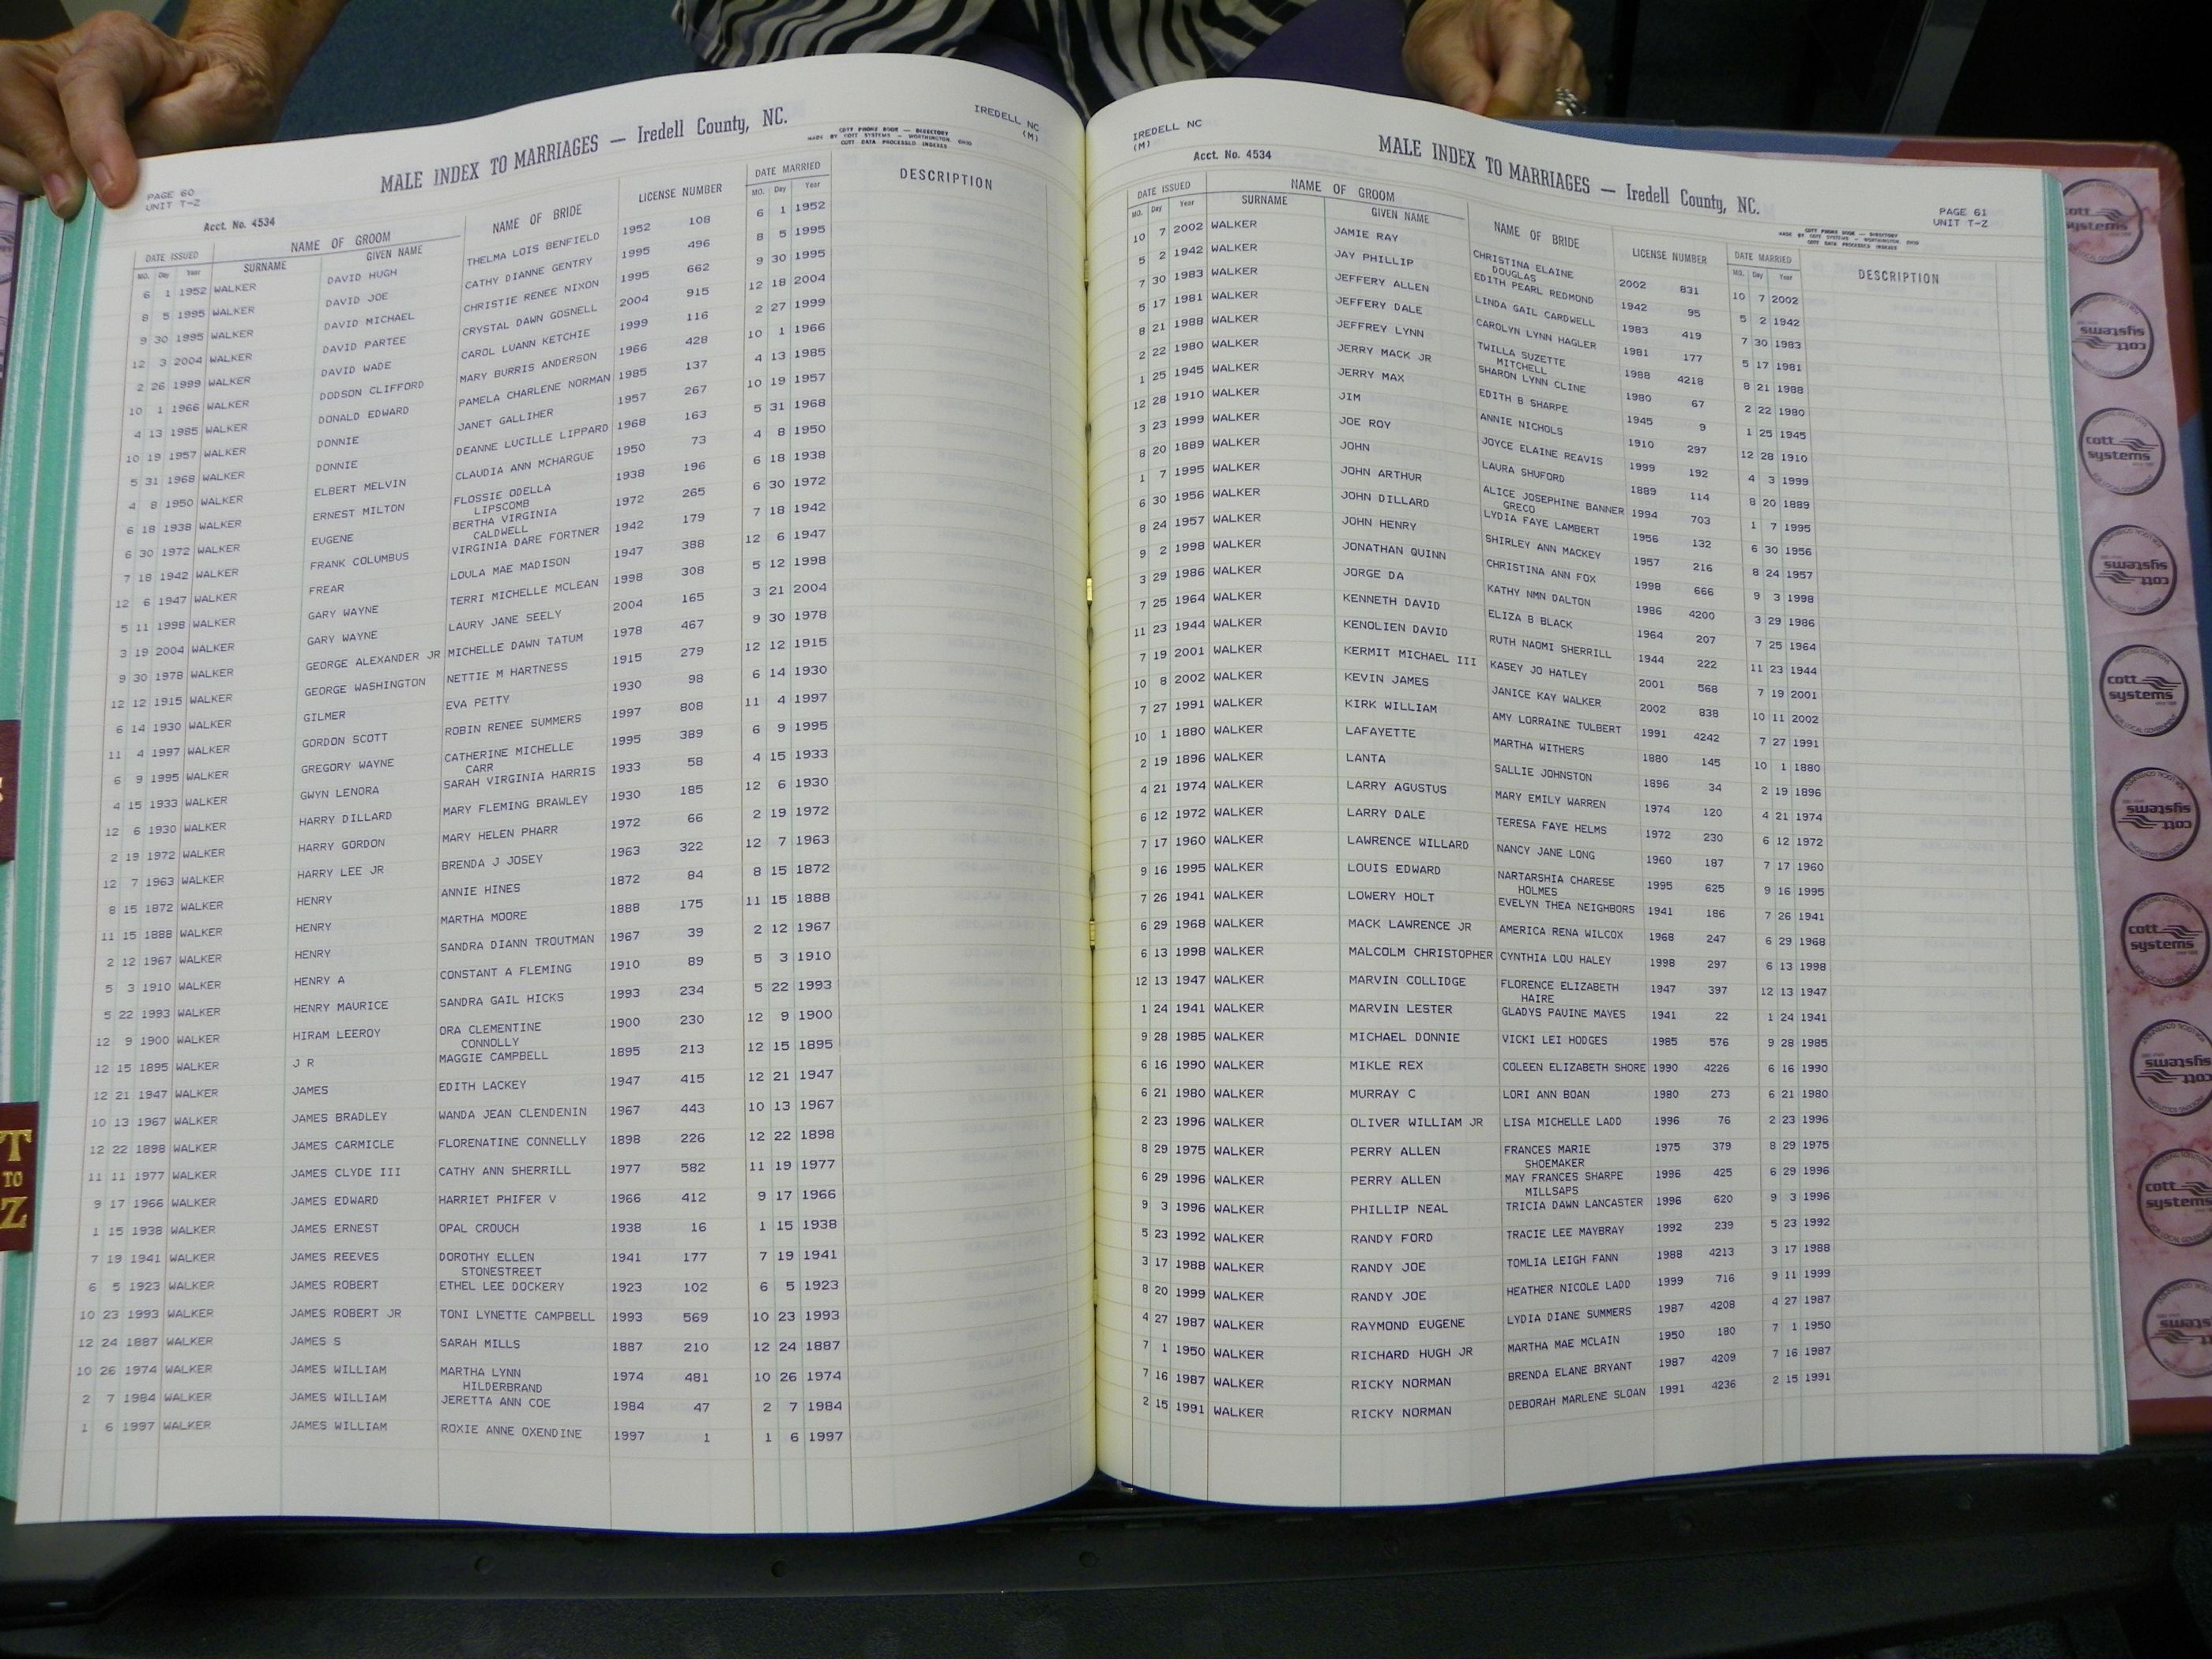 PAGE 60
UNIT T-Z
Acct. No. 4534
MALE INDEX TO MARRIAGES — Iredell County, NC.
COTT PHONE BOOK — DIRECTORY
MADE BY COTT SYSTEMS — WORTHINGTON, OHIO
COTT DATA PROCESSED INDEXES
IREDELL NC
(M)
DATE ISSUED NAME OF GROOM NAME OF BRIDE LICENSE NUMBER DATE MARRIED DESCRIPTION
MO. Day Year SURNAME GIVEN NAME MO. Day Year
6 1 1952 WALKER DAVID HUGH THELMA LOIS BENFIELD 1952 108 6 1 1952
8 5 1995 WALKER DAVID JOE CATHY DIANNE GENTRY 1995 496 8 5 1995
9 30 1995 WALKER DAVID MICHAEL CHRISTIE RENEE NIXON 1995 662 9 30 1995
12 3 2004 WALKER DAVID PARTEE CRYSTAL DAWN GOSNELL 2004 915 12 18 2004
2 26 1999 WALKER DAVID WADE CAROL LUANN KETCHIE 1999 116 2 27 1999
10 1 1966 WALKER DODSON CLIFFORD MARY BURRIS ANDERSON 1966 428 10 1 1966
4 13 1985 WALKER DONALD EDWARD PAMELA CHARLENE NORMAN 1985 137 4 13 1985
10 19 1957 WALKER DONNIE JANET GALLIHER 1957 267 10 19 1957
5 31 1968 WALKER DONNIE DEANNE LUCILLE LIPPARD 1968 163 5 31 1968
4 8 1950 WALKER ELBERT MELVIN CLAUDIA ANN MCHARGUE 1950 73 4 8 1950
6 18 1938 WALKER ERNEST MILTON FLOSSIE ODELLA 1938 196 6 18 1938
LIPSCOMB
6 30 1972 WALKER EUGENE BERTHA VIRGINIA 1972 265 6 30 1972
CALDWELL
7 18 1942 WALKER FRANK COLUMBUS VIRGINIA DARE FORTNER 1942 179 7 18 1942
12 6 1947 WALKER FREAR LOULA MAE MADISON 1947 388 12 6 1947
5 11 1998 WALKER GARY WAYNE TERRI MICHELLE MCLEAN 1998 308 5 12 1998
3 19 2004 WALKER GARY WAYNE LAURY JANE SEELY 2004 165 3 21 2004
9 30 1978 WALKER GEORGE ALEXANDER JR MICHELLE DAWN TATUM 1978 467 9 30 1978
12 12 1915 WALKER GEORGE WASHINGTON NETTIE M HARTNESS 1915 279 12 12 1915
6 14 1930 WALKER GILMER EVA PETTY 1930 98 6 14 1930
11 4 1997 WALKER GORDON SCOTT ROBIN RENEE SUMMERS 1997 808 11 4 1997
6 9 1995 WALKER GREGORY WAYNE CATHERINE MICHELLE 1995 389 6 9 1995
CARR
4 15 1933 WALKER GWYN LENORA SARAH VIRGINIA HARRIS 1933 58 4 15 1933
12 6 1930 WALKER HARRY DILLARD MARY FLEMING BRAWLEY 1930 185 12 6 1930
2 19 1972 WALKER HARRY GORDON MARY HELEN PHARR 1972 66 2 19 1972
12 7 1963 WALKER HARRY LEE JR BRENDA J JOSEY 1963 322 12 7 1963
8 15 1872 WALKER HENRY ANNIE HINES 1872 84 8 15 1872
11 15 1888 WALKER HENRY MARTHA MOORE 1888 175 11 15 1888
2 12 1967 WALKER HENRY SANDRA DIANN TROUTMAN 1967 39 2 12 1967
5 3 1910 WALKER HENRY A CONSTANT A FLEMING 1910 89 5 3 1910
5 22 1993 WALKER HENRY MAURICE SANDRA GAIL HICKS 1993 234 5 22 1993
12 9 1900 WALKER HIRAM LEEROY ORA CLEMENTINE 1900 230 12 9 1900
CONNOLLY
12 15 1895 WALKER J R MAGGIE CAMPBELL 1895 213 12 15 1895
12 21 1947 WALKER JAMES EDITH LACKEY 1947 415 12 21 1947
10 13 1967 WALKER JAMES BRADLEY WANDA JEAN CLENDENIN 1967 443 10 13 1967
12 22 1898 WALKER JAMES CARMICLE FLORENATINE CONNELLY 1898 226 12 22 1898
11 11 1977 WALKER JAMES CLYDE III CATHY ANN SHERRILL 1977 582 11 19 1977
9 17 1966 WALKER JAMES EDWARD HARRIET PHIFER V 1966 412 9 17 1966
1 15 1938 WALKER JAMES ERNEST OPAL CROUCH 1938 16 1 15 1938
7 19 1941 WALKER JAMES REEVES DOROTHY ELLEN 1941 177 7 19 1941
STONESTREET
6 5 1923 WALKER JAMES ROBERT ETHEL LEE DOCKERY 1923 102 6 5 1923
10 23 1993 WALKER JAMES ROBERT JR TONI LYNETTE CAMPBELL 1993 569 10 23 1993
12 24 1887 WALKER JAMES S SARAH MILLS 1887 210 12 24 1887
10 26 1974 WALKER JAMES WILLIAM MARTHA LYNN 1974 481 10 26 1974
HILDERBRAND
2 7 1984 WALKER JAMES WILLIAM JERETTA ANN COE 1984 47 2 7 1984
1 6 1997 WALKER JAMES WILLIAM ROXIE ANNE OXENDINE 1997 1 1 6 1997
T
TO
Z
IREDELL NC
(M)
Acct. No. 4534
MALE INDEX TO MARRIAGES — Iredell County, NC.
PAGE 61
UNIT T-Z
COTT PHONE BOOK — DIRECTORY
MADE BY COTT SYSTEMS — WORTHINGTON, OHIO
COTT DATA PROCESSED INDEXES
DATE ISSUED NAME OF GROOM NAME OF BRIDE LICENSE NUMBER DATE MARRIED DESCRIPTION
MO. Day Year SURNAME GIVEN NAME MO. Day Year
10 7 2002 WALKER JAMIE RAY CHRISTINA ELAINE 2002 831 10 7 2002
DOUGLAS
5 2 1942 WALKER JAY PHILLIP EDITH PEARL REDMOND 1942 95 5 2 1942
7 30 1983 WALKER JEFFERY ALLEN LINDA GAIL CARDWELL 1983 419 7 30 1983
5 17 1981 WALKER JEFFERY DALE CAROLYN LYNN HAGLER 1981 177 5 17 1981
8 21 1988 WALKER JEFFREY LYNN TWILLA SUZETTE 1988 4218 8 21 1988
MITCHELL
2 22 1980 WALKER JERRY MACK JR SHARON LYNN CLINE 1980 67 2 22 1980
1 25 1945 WALKER JERRY MAX EDITH B SHARPE 1945 9 1 25 1945
12 28 1910 WALKER JIM ANNIE NICHOLS 1910 297 12 28 1910
3 23 1999 WALKER JOE ROY JOYCE ELAINE REAVIS 1999 192 4 3 1999
8 20 1889 WALKER JOHN LAURA SHUFORD 1889 114 8 20 1889
1 7 1995 WALKER JOHN ARTHUR ALICE JOSEPHINE BANNER 1994 703 1 7 1995
GRECO
6 30 1956 WALKER JOHN DILLARD LYDIA FAYE LAMBERT 1956 132 6 30 1956
8 24 1957 WALKER JOHN HENRY SHIRLEY ANN MACKEY 1957 216 8 24 1957
9 2 1998 WALKER JONATHAN QUINN CHRISTINA ANN FOX 1998 666 9 3 1998
3 29 1986 WALKER JORGE DA KATHY NMN DALTON 1986 4200 3 29 1986
7 25 1964 WALKER KENNETH DAVID ELIZA B BLACK 1964 207 7 25 1964
11 23 1944 WALKER KENOLIEN DAVID RUTH NAOMI SHERRILL 1944 222 11 23 1944
7 19 2001 WALKER KERMIT MICHAEL III KASEY JO HATLEY 2001 568 7 19 2001
10 8 2002 WALKER KEVIN JAMES JANICE KAY WALKER 2002 838 10 11 2002
7 27 1991 WALKER KIRK WILLIAM AMY LORRAINE TULBERT 1991 4242 7 27 1991
10 1 1880 WALKER LAFAYETTE MARTHA WITHERS 1880 145 10 1 1880
2 19 1896 WALKER LANTA SALLIE JOHNSTON 1896 34 2 19 1896
4 21 1974 WALKER LARRY AGUSTUS MARY EMILY WARREN 1974 120 4 21 1974
6 12 1972 WALKER LARRY DALE TERESA FAYE HELMS 1972 230 6 12 1972
7 17 1960 WALKER LAWRENCE WILLARD NANCY JANE LONG 1960 187 7 17 1960
9 16 1995 WALKER LOUIS EDWARD NARTARSHIA CHARESE 1995 625 9 16 1995
HOLMES
7 26 1941 WALKER LOWERY HOLT EVELYN THEA NEIGHBORS 1941 186 7 26 1941
6 29 1968 WALKER MACK LAWRENCE JR AMERICA RENA WILCOX 1968 247 6 29 1968
6 13 1998 WALKER MALCOLM CHRISTOPHER CYNTHIA LOU HALEY 1998 297 6 13 1998
12 13 1947 WALKER MARVIN COLLIDGE FLORENCE ELIZABETH 1947 397 12 13 1947
HAIRE
1 24 1941 WALKER MARVIN LESTER GLADYS PAUINE MAYES 1941 22 1 24 1941
9 28 1985 WALKER MICHAEL DONNIE VICKI LEI HODGES 1985 576 9 28 1985
6 16 1990 WALKER MIKLE REX COLEEN ELIZABETH SHORE 1990 4226 6 16 1990
6 21 1980 WALKER MURRAY C LORI ANN BOAN 1980 273 6 21 1980
2 23 1996 WALKER OLIVER WILLIAM JR LISA MICHELLE LADD 1996 76 2 23 1996
8 29 1975 WALKER PERRY ALLEN FRANCES MARIE 1975 379 8 29 1975
SHOEMAKER
6 29 1996 WALKER PERRY ALLEN MAY FRANCES SHARPE 1996 425 6 29 1996
MILLSAPS
9 3 1996 WALKER PHILLIP NEAL TRICIA DAWN LANCASTER 1996 620 9 3 1996
5 23 1992 WALKER RANDY FORD TRACIE LEE MAYBRAY 1992 239 5 23 1992
3 17 1988 WALKER RANDY JOE TOMLIA LEIGH FANN 1988 4213 3 17 1988
8 20 1999 WALKER RANDY JOE HEATHER NICOLE LADD 1999 716 9 11 1999
4 27 1987 WALKER RAYMOND EUGENE LYDIA DIANE SUMMERS 1987 4208 4 27 1987
7 1 1950 WALKER RICHARD HUGH JR MARTHA MAE MCLAIN 1950 180 7 1 1950
7 16 1987 WALKER RICKY NORMAN BRENDA ELANE BRYANT 1987 4209 7 16 1987
2 15 1991 WALKER RICKY NORMAN DEBORAH MARLENE SLOAN 1991 4236 2 15 1991
cott
systems
cott
systems
cott
systems
cott
systems
cott
systems
cott
systems
cott
systems
cott
systems
cott
systems
cott
systems